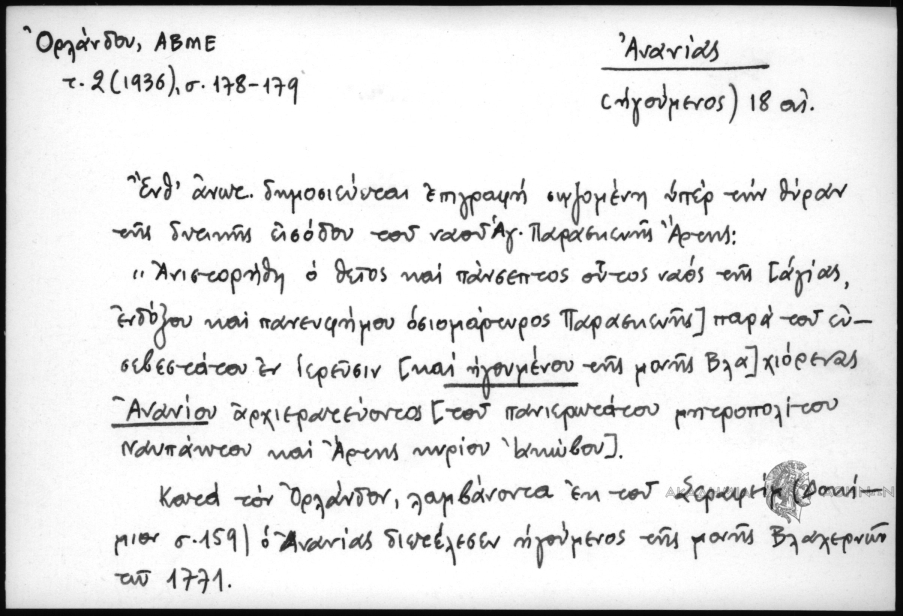 Ὀρλάνδου, ΑΒΜΕ
τ. 2 (1936), σ. 178-179
Ἀνανίας
(ἡγούμενος) 18 αἰ.
Ἔνθ' ἄνωτ. δημοσιεύεται ἐπιγραφή σῳζομένη ὑπέρ την θύραν
τῆς δυτικῆς εἰσόδου τοῦ ναοῦ Ἁγ. Παρασκευῆς Ἄρτης:
„ Ἀνιστορήθη ὁ θεῖος καί πάνσεπτος οὗτος ναός τῆς [ἁγίας,
ἐνδόξου καί πανευφήμου ὁσιομάρτυρος Παρασκευῆς] παρά τοῦ εὐ-
σεβεστάτου ἐν ἱερεῦσιν [καί ἡγουμένου τῆς μονῆς Βλα]χιόρενας
Ἀνανίου ἀρχιερατεύοντος [τοῦ πανιερωτάτου μητροπολίτου
Ναυπάκτου καί Ἄρτης κυρίου Ἰακώβου].
Κατά τόν Ὀρλάνδον, λαμβάνοντα ἐκ τοῦ Σεραφείμ (Δοκί-
μιον σ. 159) ὁ Ἀνανίας διετέλεσεν ἡγούμενος τῆς μονῆς Βλαχερνῶν
τῷ 1771.